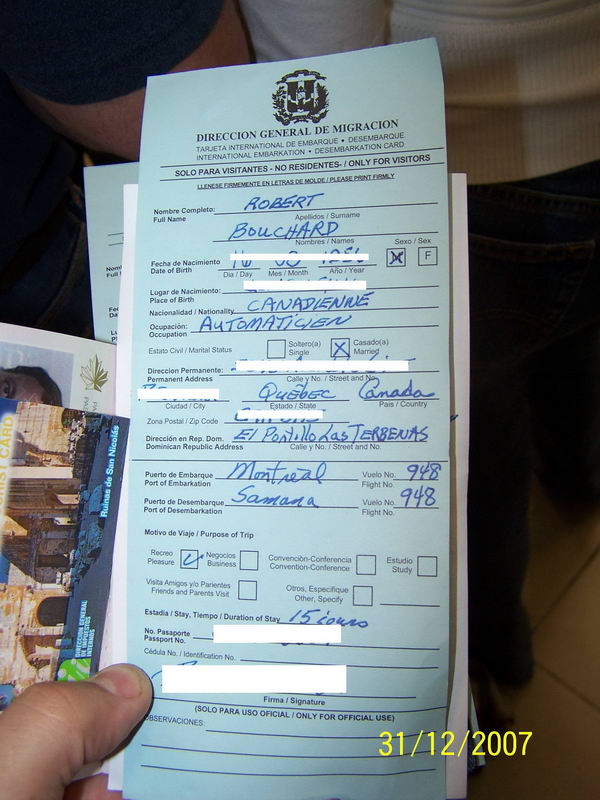 DIRECCION GENERAL DE MIGRACION
TARJETA INTERNATIONAL DE EMBARQUE • DESEMBARQUE
INTERNATIONAL EMBARKATION • DESEMBARKATION CARD
SOLO PARA VISITANTES - NO RESIDENTES- / ONLY FOR VISITORS
LLENESE FIRMEMENTE EN LETRAS DE MOLDE / PLEASE PRINT FIRMLY
Nombre Completo: ROBERT
Full Name Apellidos / Surname
BOUCHARD
Nombres / Names Sexo / Sex
Fecha de Nacimiento X F
Date of Birth Dia / Day Mes / Month Año / Year
Lugar de Nacimiento:
Place of Birth
Nacionalidad / Nationality CANADIENNE
Ocupación: AUTOMATICIEN
Occupation
Estato Civil / Marital Status Soltero(a) X Casado(a)
Single Married
Direccion Permanente:
Permanent Address Calle y No. / Street and No.
Québec Canada
Ciudad / City Estado / State Pais / Country
Zona Postal / Zip Code
Dirección en Rep. Dom. El Portillo Las TERBENAS
Dominican Republic Address Calle y No. / Street and No.
Puerto de Embarque Montreal Vuelo No. 948
Port of Embarkation Flight No.
Puerto de Desembarque Samana Vuelo No. 948
Port of Desembarkation Flight No.
Motivo de Viaje / Purpose of Trip
Recreo Negocios Convención-Conferencia Estudio
Pleasure Business Convention-Conference Study
Visita Amigos y/o Parientes Otros, Especifique
Friends and Parents Visit Other, Specify
Estadía / Stay, Tiempo / Duration of Stay 15 jours
No. Pasaporte
Passport No.
Cédula No. / Identification No.
Firma / Signature
(SOLO PARA USO OFICIAL / ONLY FOR OFFICIAL USE)
OBSERVACIONES:
Ruinas de San Nicolás
DIRECCION GENERAL
DE IMPUESTOS
INTERNOS
31/12/2007